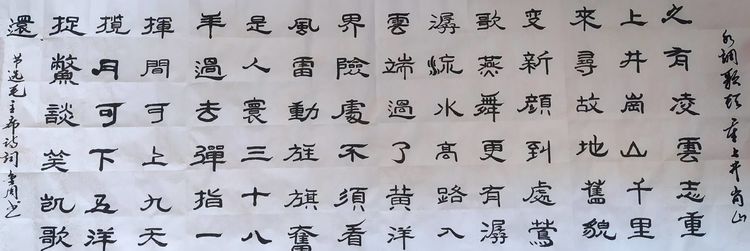 水调歌头 重上井岗山
久有凌雲志重
上井崗山千里
來尋故地舊貌
变新顔到處鶯
歌燕舞更有潺
潺流水高路入
雲端過了黄洋
界險處不須看
風雷動旌旗奮
是人寰三十八
年過去彈指一
揮間可上九天
攬月可下五洋
捉鱉談笑凱歌
還
节选毛主席诗词